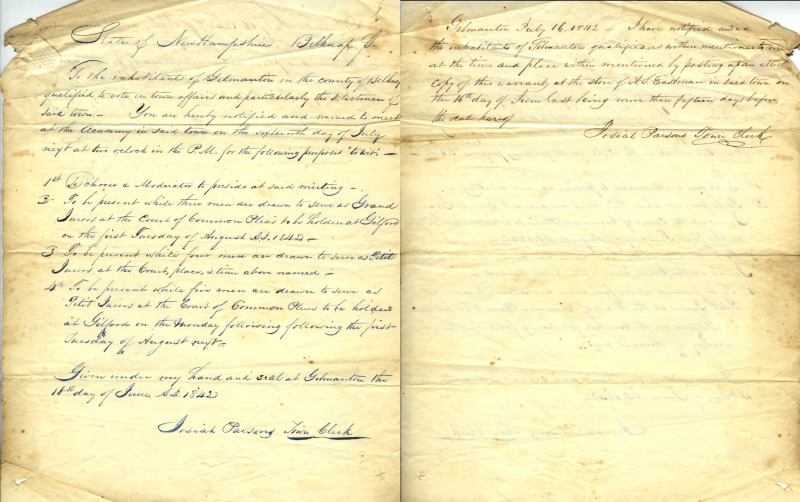 State of New Hampshire Belknap S.
To the inhabitants of Gilmanton in the county of Belknap
qualified to vote in town affairs and particularly the Selectmen of
said town — You are hereby notified and warned to meet
at the Academy in said town on the sixteenth day of July
next at two o'clock in the P.M. for the following purposes to wit. —
1st To choose a Moderator to preside at said meeting —
2 To be present while three men are drawn to serve as Grand
Jurors at the Court of Common Pleas to be holden at Gilford
on the first Tuesday of August A.D. 1842 —
3 To be present while four men are drawn to serve as Petit
Jurors at the Court, place, & time above named —
4th To be present while five men are drawn to serve as
Petit Jurors at the Court of Common Pleas to be holden
at Gilford on the Monday following following the first
Tuesday of August next —
Given under my hand and seal at Gilmanton the
16th day of June A.D. 1842
Josiah Parsons Town Clerk
Gilmanton July 16. 1842 — I have notified
the inhabitants of Gilmanton qualified as within mentioned to meet
at the time and place within mentioned by posting up an attest
copy of this warrant, at the store of A.S. Eastman in said town on
the 16th day of June last being more then fifteen days before
the date hereof
Josiah Parsons Town Clerk